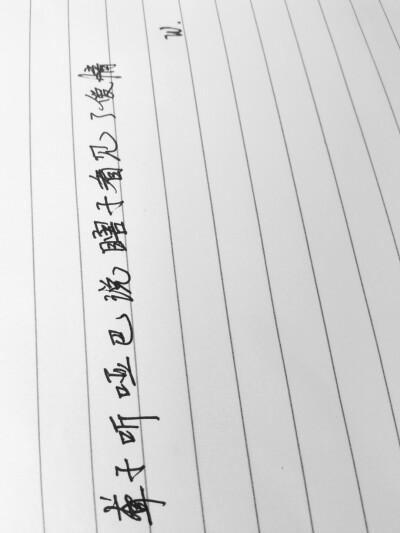 聋子听哑巴说瞎子看见了爱情
W.